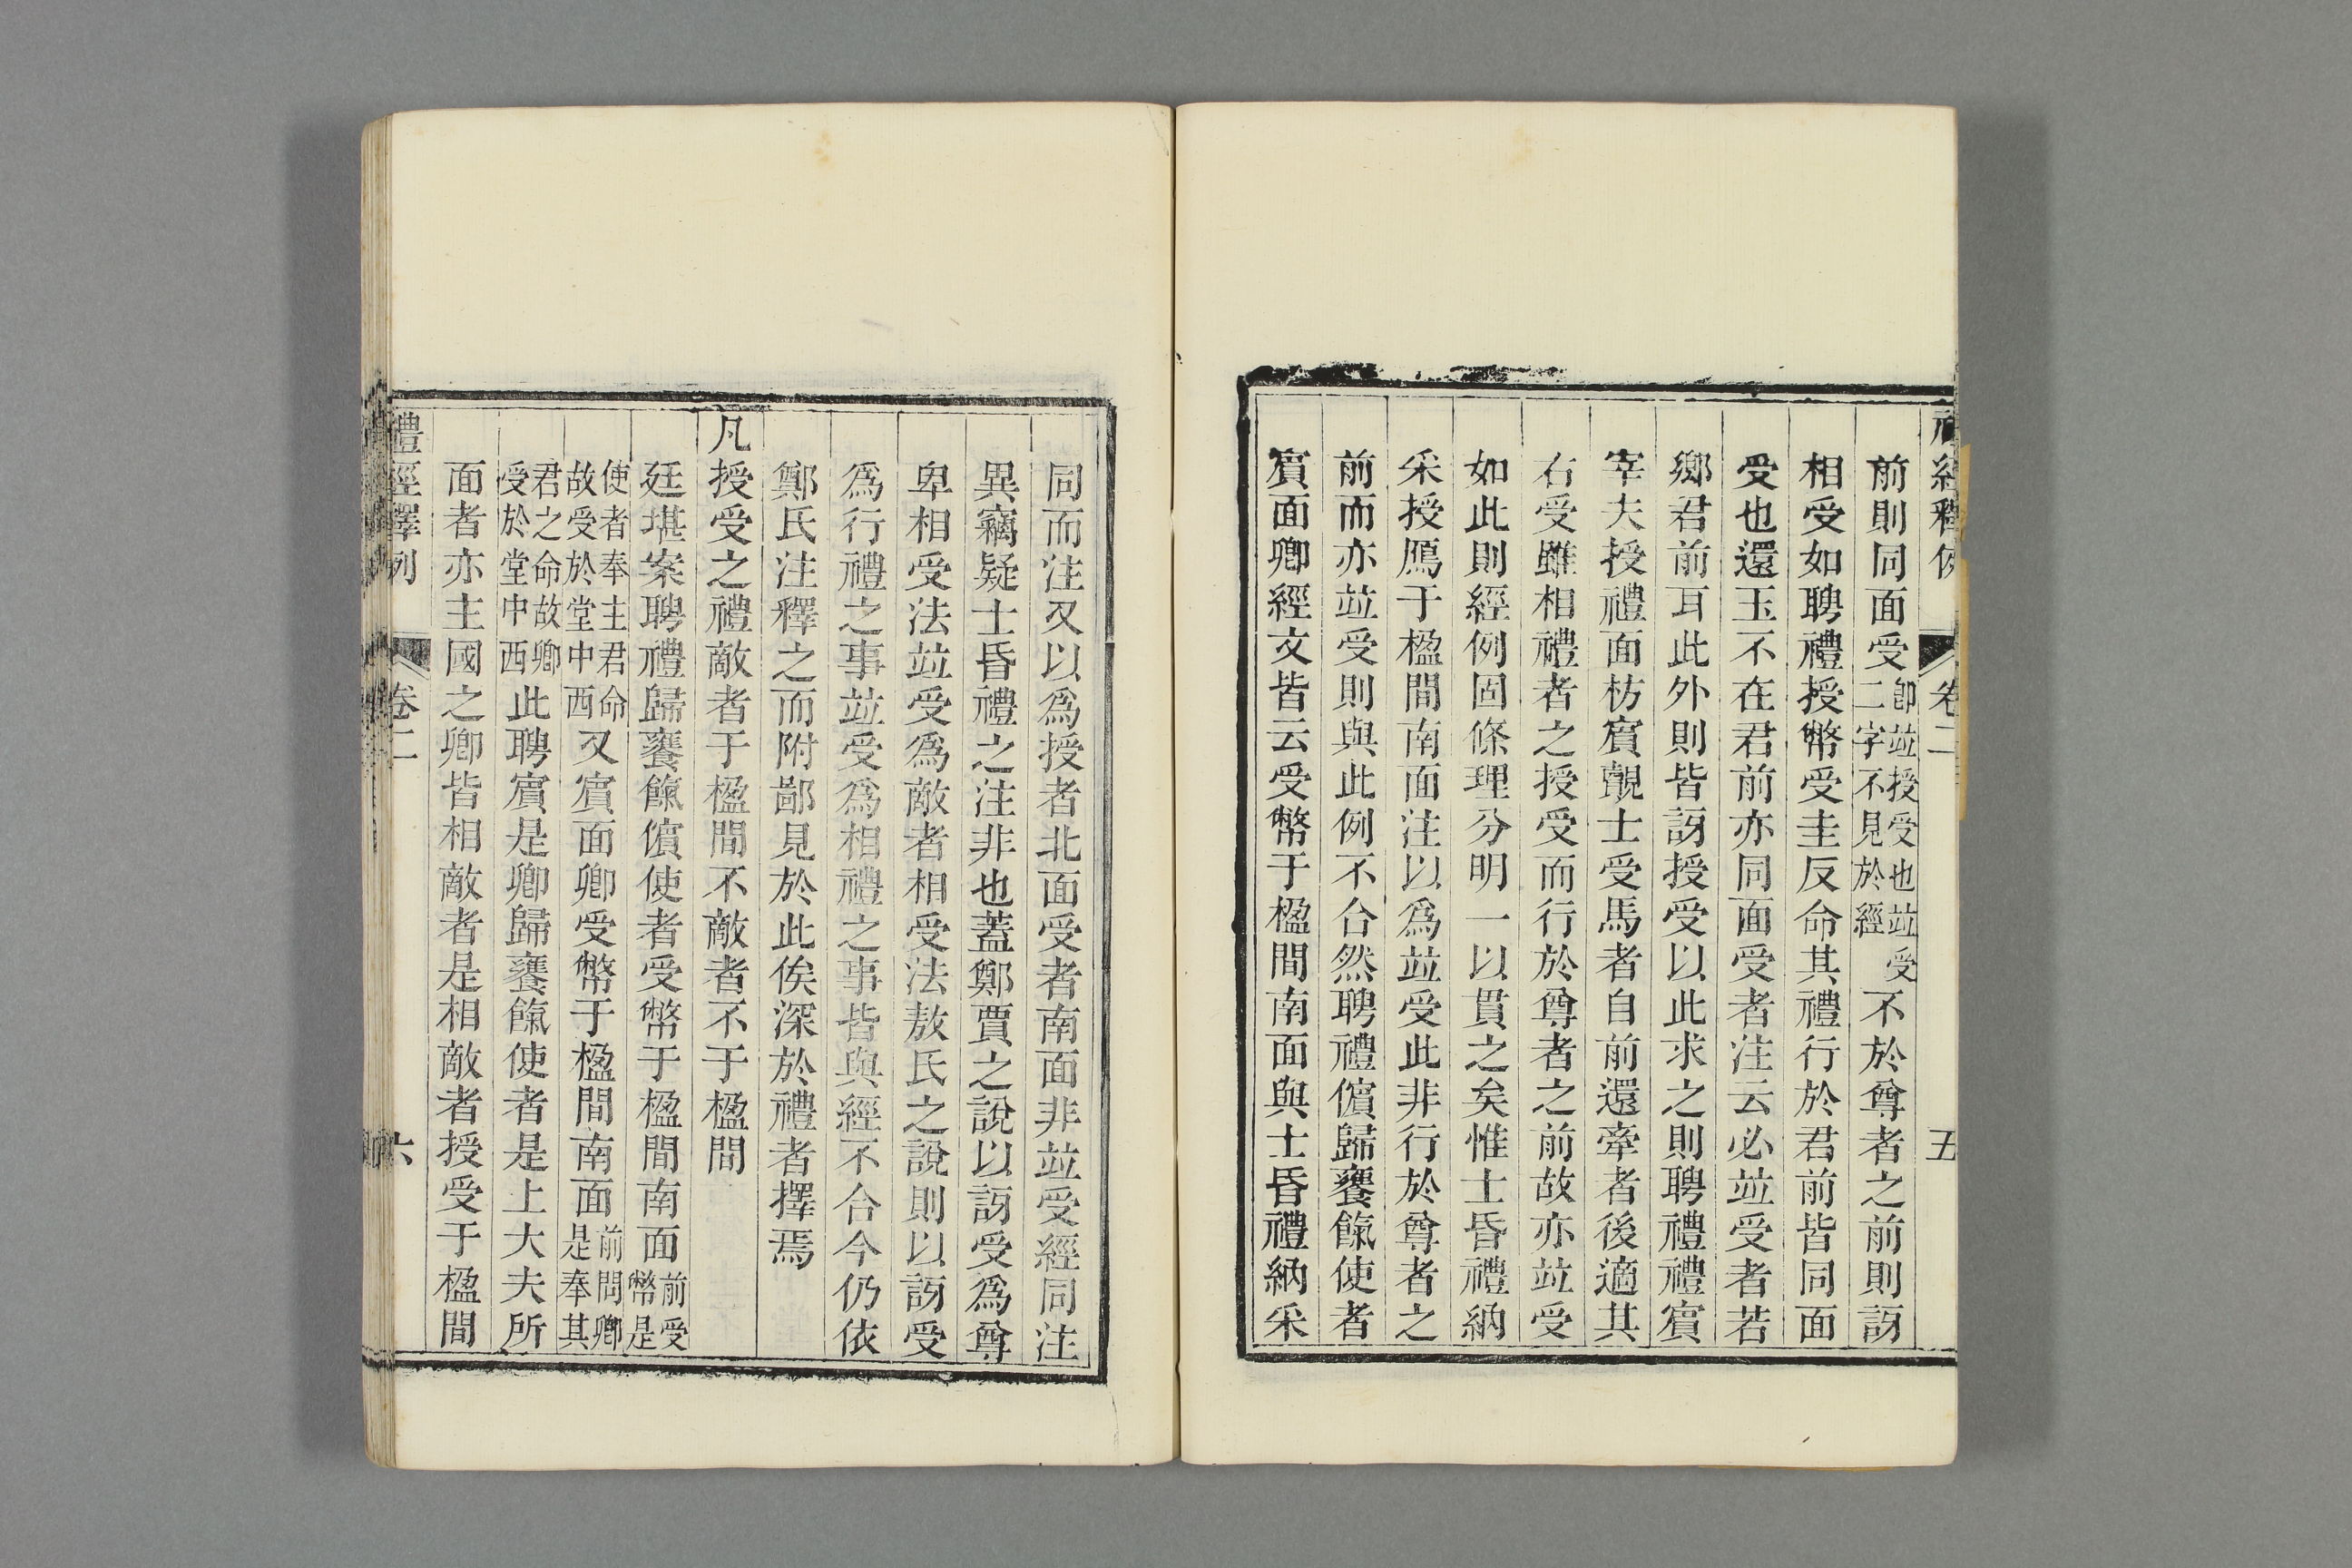 禮經釋例 卷二 五
前則同面受卽竝授受也竝受二字不見於經不於尊者之前則訝
相受如聘禮授幣受圭反命其禮行於君前皆同面
受也還玉不在君前亦同面受者注云必竝受者若
鄉君前耳此外則皆訝授受以此求之則聘禮禮賓
宰夫授禮面枋賓覿士受馬者自前還牽者後適其
右受雖相禮者之授受而行於尊者之前故亦竝受
如此則經例固條理分明一以貫之矣惟士昏禮納
采授鴈于楹間南面注以爲竝受此非行於尊者之
前而亦竝受則與此例不合然聘禮儐歸饔餼使者
賓面卿經文皆云受幣于楹間南面與士昏禮納采
同而注又以爲授者北面受者南面非竝受經同注
異竊疑士昏禮之注非也蓋鄭賈之說以訝受爲尊
卑相受法竝受爲敵者相受法敖氏之說則以訝受
爲行禮之事竝受爲相禮之事皆與經不合今仍依
鄭氏注釋之而附鄙見於此俟深於禮者擇焉
凡授受之禮敵者于楹間不敵者不于楹間
廷堪案聘禮歸饔餼儐使者受幣于楹間南面前受幣是
使者奉主君命故受於堂中西又賓面卿受幣于楹間南面前問卿是奉其
君之命故卿受於堂中西此聘賓是卿歸饔餼使者是上大夫所
面者亦主國之卿皆相敵者是相敵者授受于楹間
禮經釋例 卷二 六